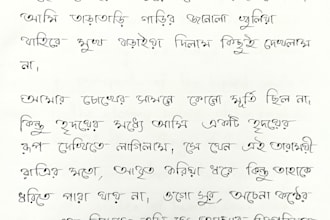 আমি তাড়াতাড়ি গাড়ির জানালা খুলিয়া
বাহিরে মুখ বাড়াইয়া দিলাম কিছুই দেখলাম
না।
আমার চোখের সামনে কোনো মূর্তি ছিল না,
কিন্তু হৃদয়ের মধ্যে আমি একটি হৃদয়ের
রূপ দেখিতে লাগিলাম। সে যেন এই তারাময়ী
রাত্রির মতো, আবৃত করিয়া ধরে কিন্তু তাহাকে
ধরিতে পারা যায় না। ওগো সুর, অচেনা কণ্ঠের